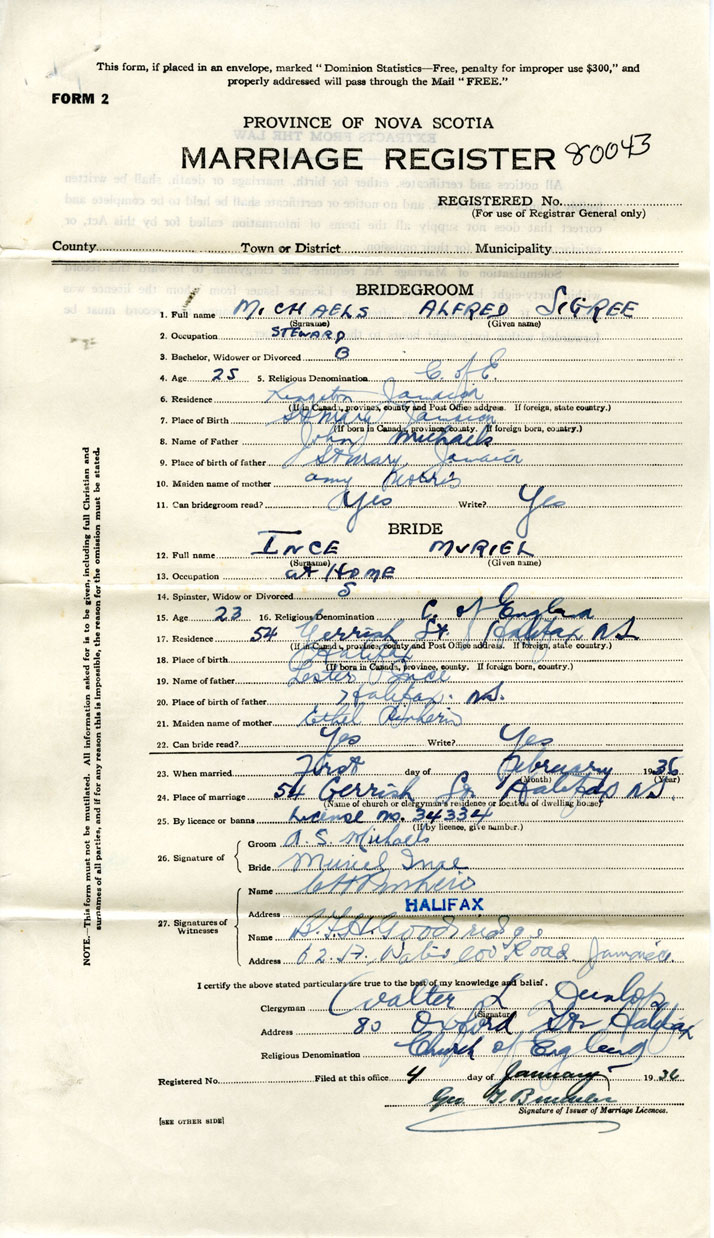 This form, if placed in an envelope, marked “ Dominion Statistics—Free, penalty for improper use $300,” and
properly addressed will pass through the Mail “ FREE.”
FORM 2
PROVINCE OF NOVA SCOTIA
MARRIAGE REGISTER 80043
REGISTERED No.
(For use of Registrar General only)
County Town or District Municipality
BRIDEGROOM
1. Full name MICHAELS ALFRED SIGREE
(Surname) (Given name)
2. Occupation STEWARD
3. Bachelor, Widower or Divorced B
4. Age 25 5. Religious Denomination C. of E.
6. Residence Kingston Jamaica
(If in Canada, province, county and Post Office address. If foreign, state country.)
7. Place of Birth St Mary Jamaica
(If born in Canada, province, county. If foreign born, country.)
8. Name of Father John Michaels
9. Place of birth of father St Mary Jamaica
10. Maiden name of mother Amy Morris
11. Can bridegroom read? Yes Write? Yes
BRIDE
12. Full name INCE MURIEL
(Surname) (Given name)
13. Occupation at HOME
14. Spinster, Widow or Divorced S
15. Age 23 16. Religious Denomination C. of England
17. Residence 54 Gerrish St. Halifax N.S.
(If in Canada, province, county and Post Office address. If foreign, state country.)
18. Place of birth Halifax
(If born in Canada, province, county. If foreign born, country.)
19. Name of father Lester Ince
20. Place of birth of father Halifax. N.S.
21. Maiden name of mother Ethel
22. Can bride read? Yes Write? Yes
23. When married First day of February 1936
(Month) (Year)
24. Place of marriage 54 Gerrish St Halifax N.S.
(Name of church or clergyman's residence or location of dwelling house)
25. By licence or banns License no. 34334
(If by licence, give number.)
26. Signature of Groom A. S. Michaels
Bride Muriel Ince
27. Signatures of Witnesses
Name
Address HALIFAX
Name Goodridge
Address 62 Road Jamaica
I certify the above stated particulars are true to the best of my knowledge and belief.
Clergyman Walter L Dunlop
(Signature)
Address 80 Oxford St. Halifax
Religious Denomination Church of England
Registered No. Filed at this office 4 day of January 1936
Geo
Signature of Issuer of Marriage Licences.
[SEE OTHER SIDE]
NOTE.—This form must not be mutilated. All information asked for is to be given, including full Christian and
surnames of all parties, and if for any reason this is impossible, the reason for the omission must be stated.